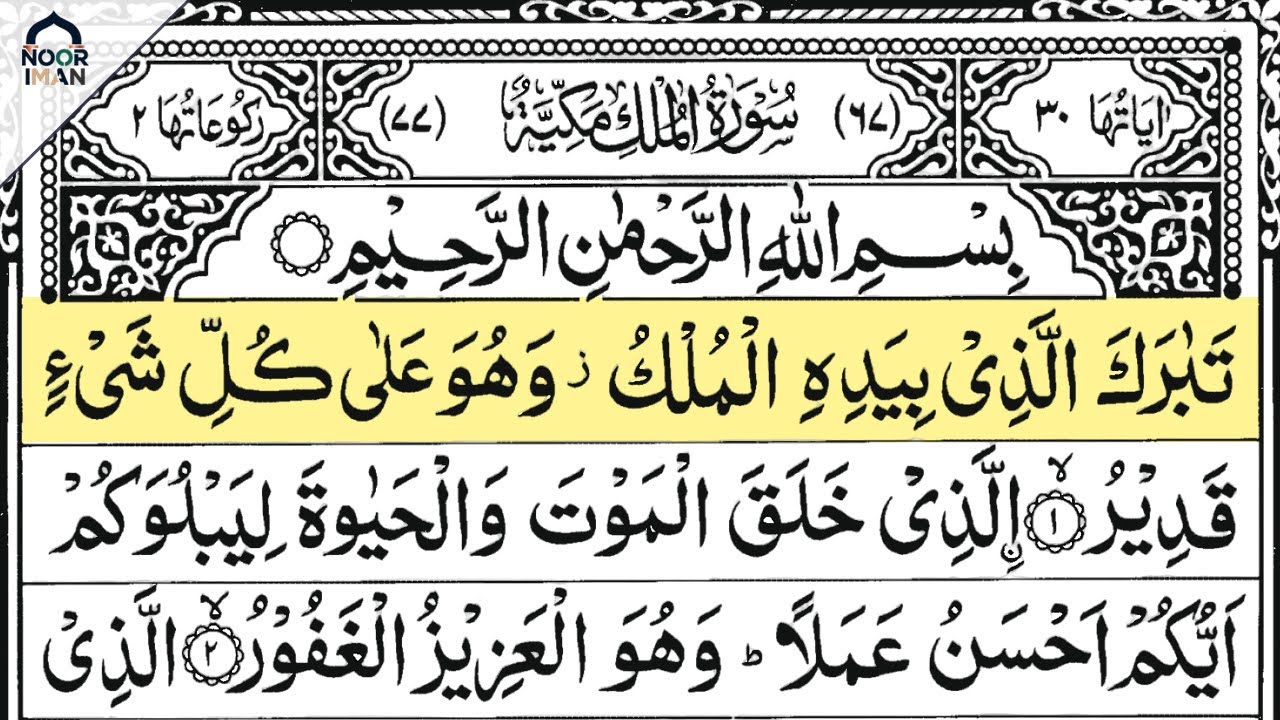 NOOR
IMAN
اٰیَاتُهَا ۳۰ (٦٧) سُوْرَةُ الْمُلْكِ مَكِّيَّةٌ (٧٧) رُكُوْعَاتُهَا ۲
بِسْمِ اللّٰهِ الرَّحْمٰنِ الرَّحِيْمِ
تَبٰرَكَ الَّذِیْ بِيَدِهِ الْمُلْكُ ز وَهُوَ عَلٰی كُلِّ شَیْءٍ
قَدِيْرُ ۙ﴿۱﴾ اۨلَّذِیْ خَلَقَ الْمَوْتَ وَالْحَيٰوةَ لِيَبْلُوَكُمْ
اَيُّكُمْ اَحْسَنُ عَمَلًا ؕ وَهُوَ الْعَزِيْزُ الْغَفُوْرُ ۙ﴿۲﴾ الَّذِیْ